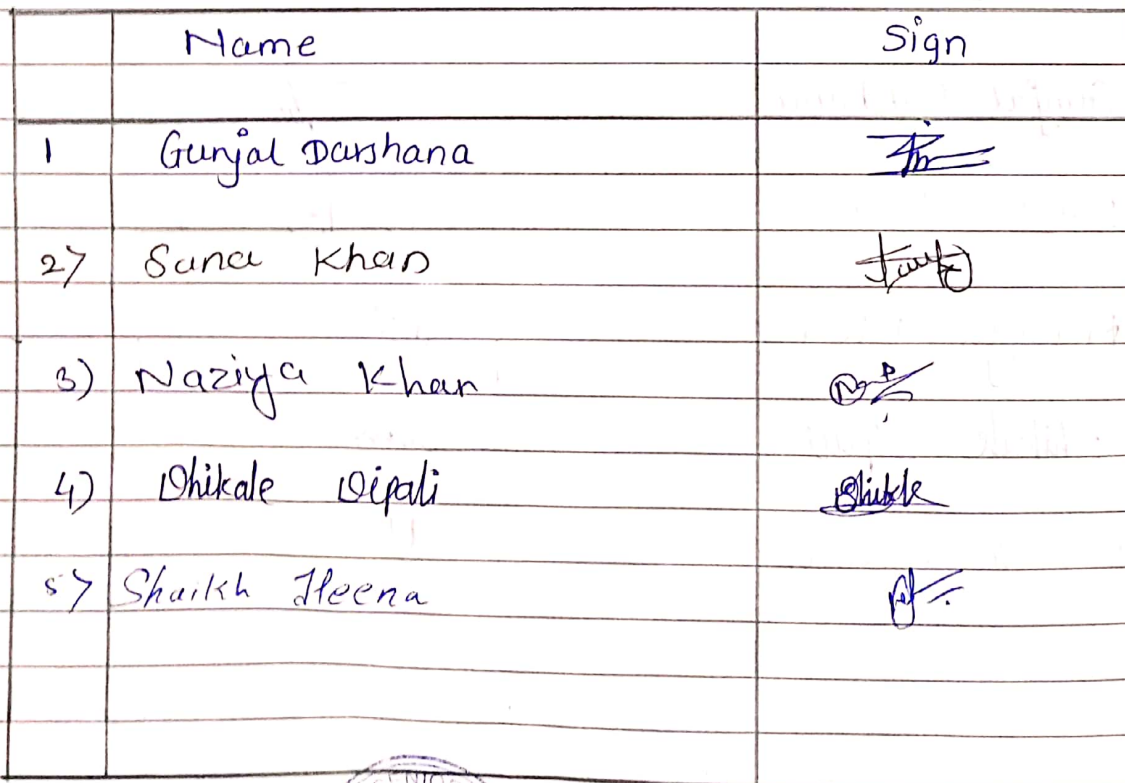 Name Sign
1 Gunjal Darshana
2) Sana Khan
3) Naziya Khan
4) Dhikale Dipali
5) Shaikh Heena